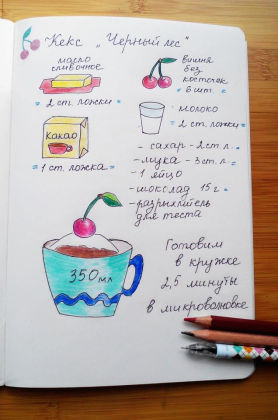 Кекс „Черный лес"
масло
сливочное
2 ст. ложки
вишня
без
косточек
6 шт.
Какао
1 ст. ложка
молоко
2 ст. ложки
- сахар - 2 ст. л.
- мука - 3 ст. л.
- 1 яйцо
- шоколад 15 г
- разрыхлитель
для теста
350 мл
Готовим
в кружке
2,5 минуты
в микроволновке